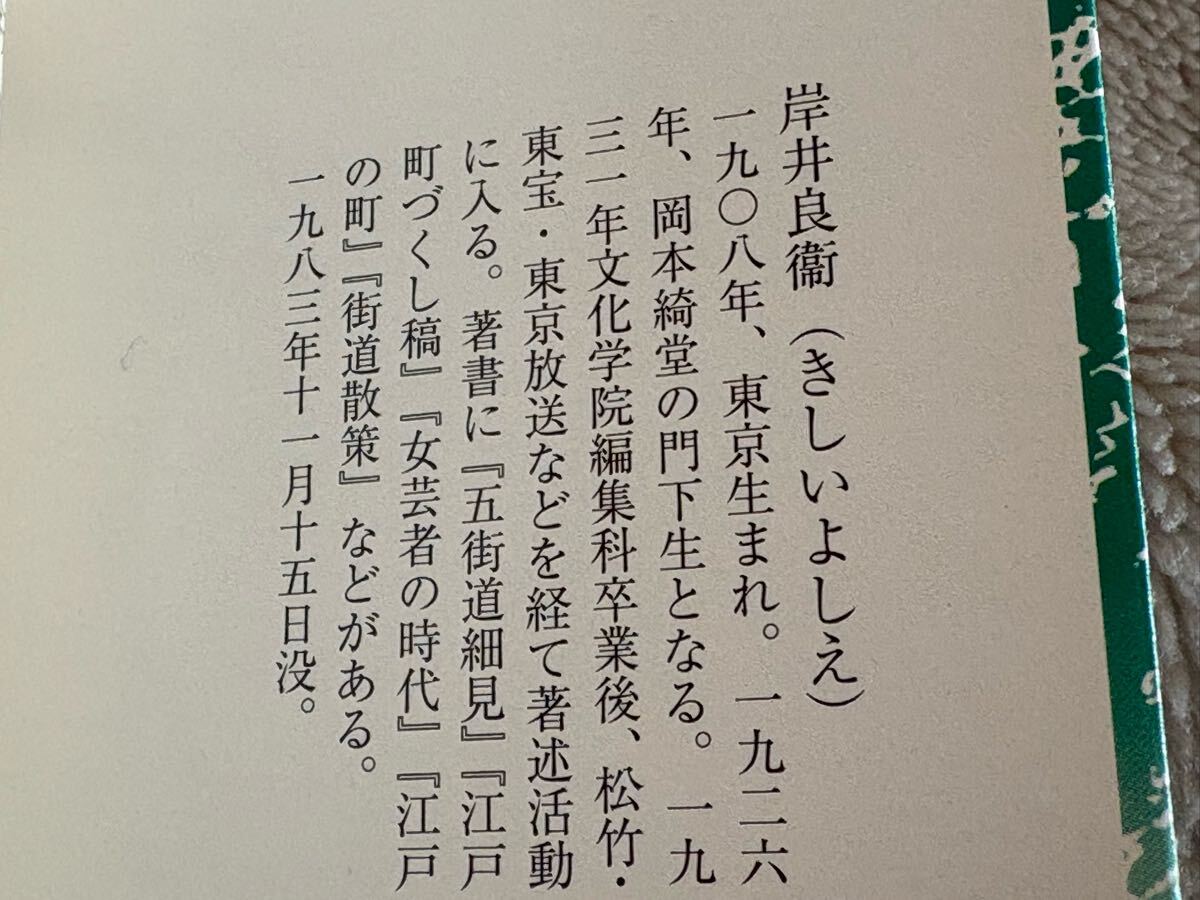 岸井良衞（きしいよしえ）
一九〇八年、東京生まれ。一九二六
年、岡本綺堂の門下生となる。一九
三一年文化学院編集科卒業後、松竹・
東宝・東京放送などを経て著述活動
に入る。著書に『五街道細見』『江戸
町づくし稿』『女芸者の時代』『江戸
の町』『街道散策』などがある。
一九八三年十一月十五日没。